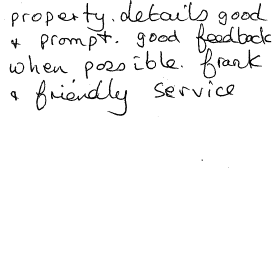 property. details good
& prompt. good feedback
when possible. frank
& friendly service